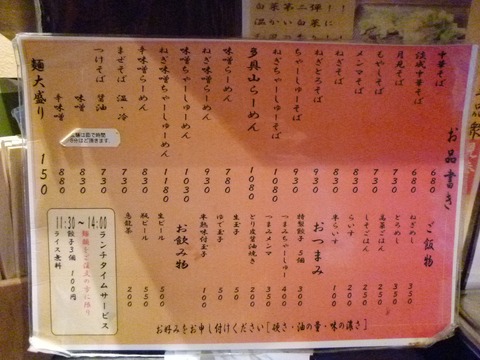 お品書き
中華そば 680
淡成中華そば 680
月見そば 730
もやしそば 730
メンマそば 830
ねぎそば 830
ねぎとろそば 930
ちゃーしゅーそば 980
ねぎちゃーしゅーそば 1080
多具山らーめん 1080
味噌らーめん 780
ねぎ味噌らーめん 930
味噌ちゃーしゅーめん 1030
ねぎ味噌ちゃーしゅーめん 1180
辛味噌らーめん 830
まぜそば 温・冷 730
つけそば 醤油 730
味噌 830
辛味噌 880
麺大盛り 150
ご飯物
ねぎめし 350
とろめし 350
高菜ごはん
しそごはん
らいす
半らいす 100
おつまみ
特製餃子 5個
つまみちゃーしゅー 400
つまみメンマ
とり皮醤油焼き 250
生玉子 50
ゆで玉子 50
半熟味付玉子 100
お飲み物
生ビール 550
瓶ビール 550
烏龍茶 200
ランチタイムサービス
11:30~14:00
麺類をご注文の方に限り
餃子3個 100円
ライス無料
お好みをお申し付けください[硬さ・油の量・味の濃さ]